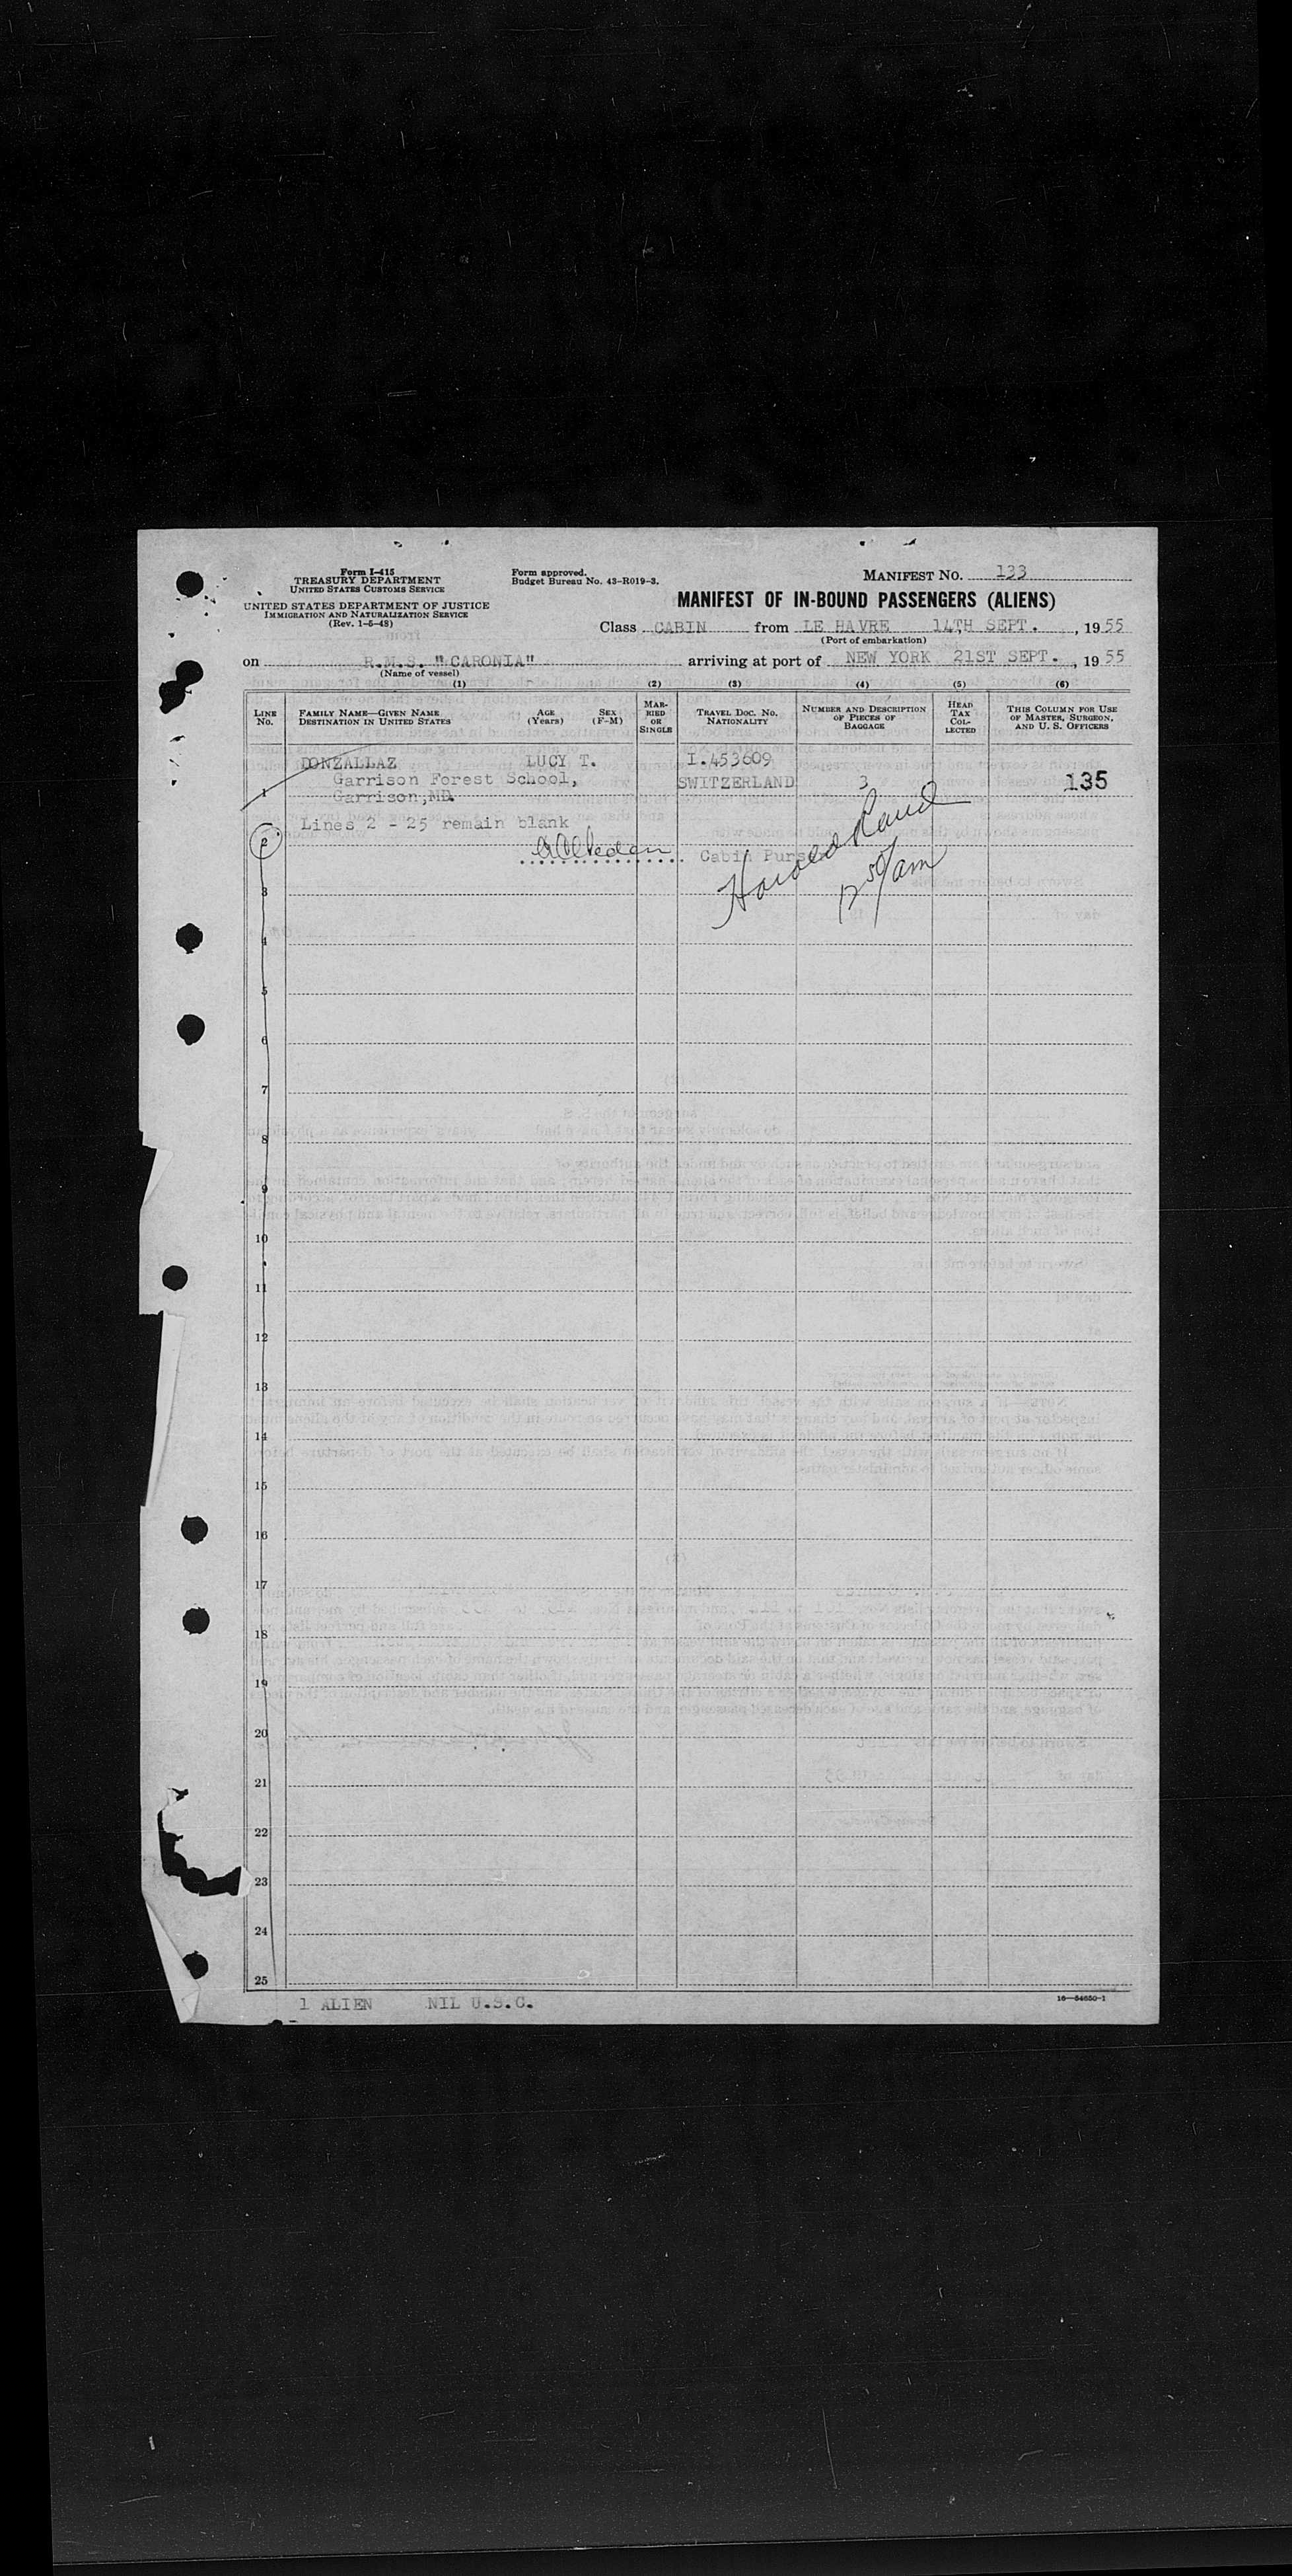 Form I-415
TREASURY DEPARTMENT
UNITED STATES CUSTOMS SERVICE
UNITED STATES DEPARTMENT OF JUSTICE
IMMIGRATION AND NATURALIZATION SERVICE
(Rev. 1-5-48)
Form approved.
Budget Bureau No. 43-R019-3.
MANIFEST NO. 133
MANIFEST OF IN-BOUND PASSENGERS (ALIENS)
Class CABIN from LE HAVRE 14TH SEPT. , 19 55
(Port of embarkation)
on R.M.S. "CARONIA" arriving at port of NEW YORK 21ST SEPT. , 19 55
(Name of vessel)
(1) (2) (3) (4) (5) (6)
LINE NO. FAMILY NAME—GIVEN NAME DESTINATION IN UNITED STATES AGE (Years) SEX (F-M) MARRIED OR SINGLE TRAVEL DOC. NO. NATIONALITY NUMBER AND DESCRIPTION OF PIECES OF BAGGAGE HEAD TAX COLLECTED THIS COLUMN FOR USE OF MASTER, SURGEON, AND U. S. OFFICERS
DONZALLAZ LUCY T. I.453609
Garrison Forest School, SWITZERLAND 3 135
1 Garrison,MD.
Lines 2 - 25 remain blank
2 Cabin Purs
Harold Rand
3
4
5
6
7
8
9
10
11
12
13
14
15
16
17
18
19
20
21
22
23
24
25
1 ALIEN NIL U.S.C.
16—54650-1